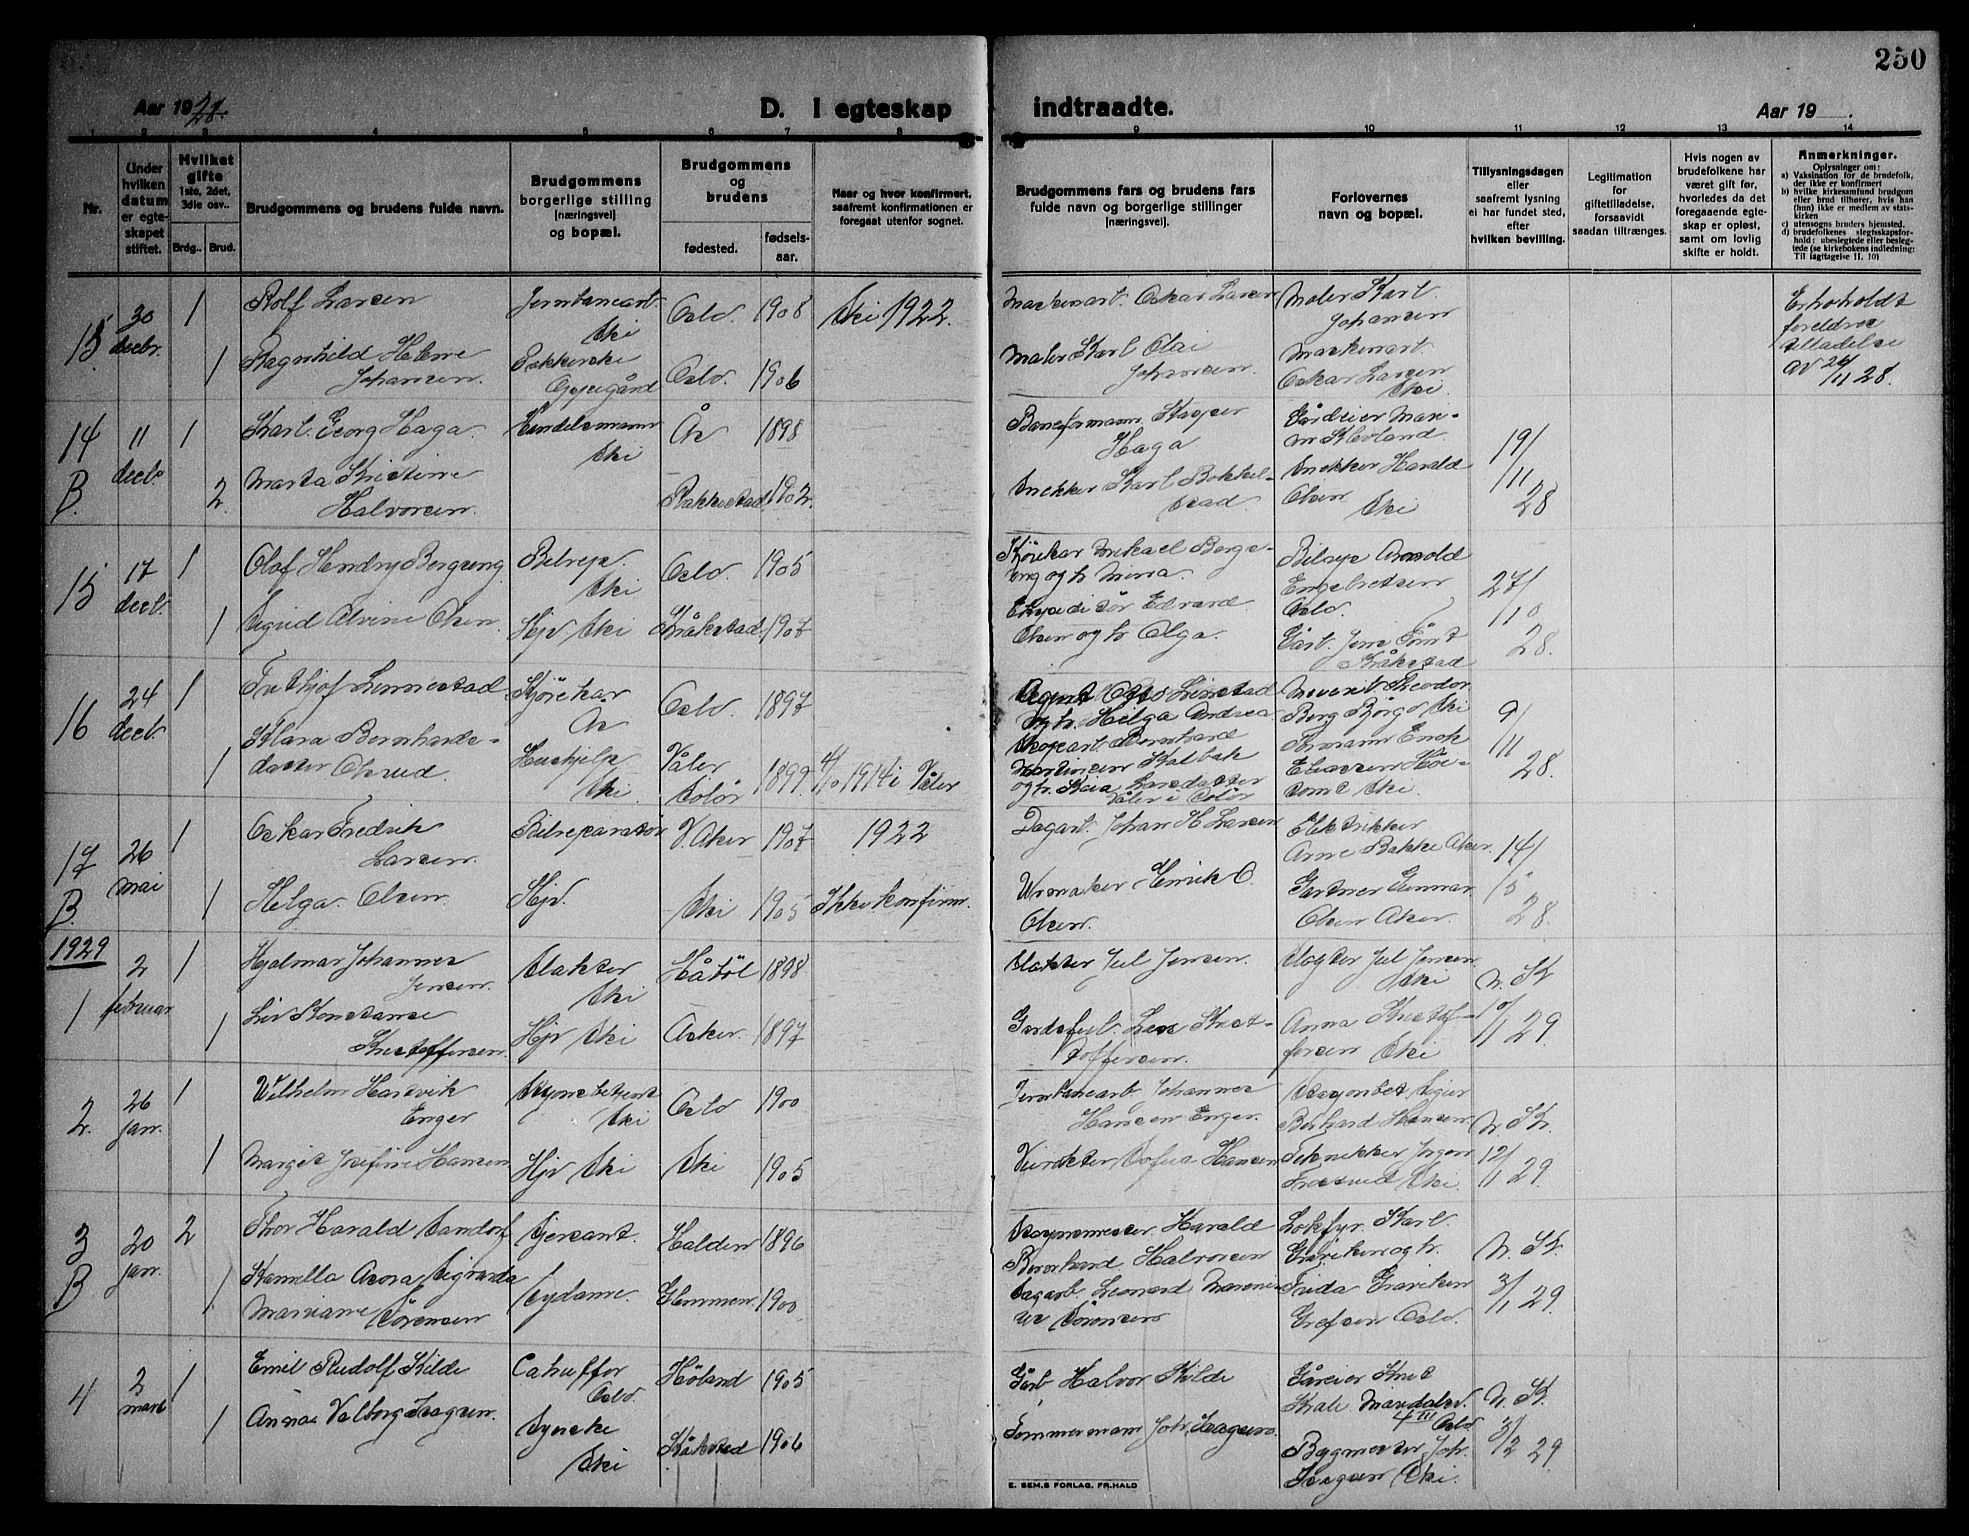 250
Aar 1928.
D. I egteskap
indtraadte.
Aar 19
1 2 3 4 5 6 7 8 9 10 11 12 13 14
Nr.
Under hvilken datum er egteskapet stiftet.
Hvilket gifte 1ste, 2det, 3die osv..
Brdg.. Brud.
Brudgommens og brudens fulde navn.
Brudgommens borgerlige stilling [næringsvei] og bopæl.
Brudgommens og brudens
fødested.
fødselsaar.
Naar og hvor konfirmert, saafremt konfirmationen er foregaat utenfor sognet.
Brudgommens fars og brudens fars fulde navn og borgerlige stillinger [næringsvei].
Forlovernes navn og bopæl.
Tillysningsdagen eller saafremt lysning ei har fundet sted, efter hvilken bevilling.
Legitimation for giftetilladelse, forsaavidt saadan tiltrænges.
Hvis nogen av brudefolkene har været gift før, hvorledes da det foregaaende egteskap er opløst, samt om lovlig skifte er holdt.
Anmerkninger.
Oplysninger om:
a) Vaksination for de brudefolk, der ikke er konfirmert
b) hvilke kirkesamfund brudgom eller brud tilhører, hvis han (hun) ikke er medlem av statskirken
c) utensogns bruders hjemsted.
d) brudefolkenes slegtsskapsforhold: ubeslegtede eller beslegtede (se kirkebokens indledning: Til iagttagelse II. 10)
13 30 decbr. 1 Rolf Larsen Jernbanearb. Ski Oslo. 1908 Ski 1922. Maskinarb. Oskar Larsen Maler Karl Johansen
1 Ragnhild Helene Johansen. Oppegård Oslo. 1906 Maler Karl Olai Johansen. Maskinarb. Oskar Larsen Ski
foreldres tilladelse av 26/11 28.
14 B. 11 decb. 1 Karl Georg Haga. Handelsmann Ski Ås 1898 Baneformann Kasper Haga Gårdeier Klevland. 19/11 28
2. Marta Kristine Halvorsen. Rakkestad 1902. Snekker Karl Snekker Harald Olsen Ski
15 17 decb. 1 Olaf Hendry Bergseng Bilrep. Ski Oslo. 1905 Kjørekar Mikael Bergseng og h. Minna. Bilrep Arnold Engebretsen Oslo. 27/10 28.
1 Sigrid Alvine Olsen. Hjv Ski Kråkstad 1907 Ekspeditør Edvard Olsen og h. Olga. Gårb. Jens Kråkstad
16 24 decb. 1 Frithjof Linnestad Kjørekar Ås Oslo. 1897 Agent Linnestad og h. Helga Andrea Theodor Berg Ski 9/11 28.
1 Klara Bernhardsdatter Olsrud. Hushjelp Ski. Våler Solør 1899 4/10 1914 i Våler Skogsarb. Bernhard Martinsen Kalbak og h. Kaia Larsdatter Våler i Solør Formann Enok Eliassen Ski.
17 B. 26 mai 1 Oskar Fredrik Larsen. Bilreparatør V. Aker 1907 1922 Dagarb. Johan H Larsen Elektrikker Arne Bakke Aker. 14/5 28
1 Helga Olsen. Hjv. Ski 1905 Ikke konfirm. Urmaker Henrik O. Olsen. Gartner Gunnar Olsen Aker.
1929
1 2 februar 1 Hjalmar Johannes Jensen. Slakter Ski Håbøl 1898 Slakter Jul Jensen. Slagter Jul Jensen Ski N. Sk.
1 Liv Konstanse Kristoffersen. Hjv Ski Asker. 1897 Gårdsfulm. Lars Kristoffersen. Anna Kristoffersen Ski 10/1 29.
2. 26 jan. 1 Wilhelm Hartvik Enger Stasjonsbetjent Ski Oslo 1900 Jernbanearb. Johannes Hansen Enger. Stasjonbet. Birger Bernhard Hansen. N. Sk.
1 Margit Josefine Hansen Hjv Ski Ski 1905 Hansen Teknikker Ski. 12/1 29.
3 B 20 jan. 2 Thor Harald Sandorf Sjersant. Halden 1896 Harald Bernhard Halvorsen Lokfyr. Karl Graviken og h. N. Sk.
1 Kamilla Asora Sigranda Mariane Sørensen Sydame. Glemmen. 1900 Dagarb. Leonard Sørensen Frida Graviken Grefsen Oslo. 3/1 29.
4 2 mars 1 Emil Rudolf Kilde Cahuffør Oslo. Høland 1905 Gårb Halvor Kilde Gåreier Knut Skale Maridalsv. 4 III Oslo N. Sk.
1 Anna Valborg Syerske Ski Kråkstad 1906 Tømmermann Joh. Byggmester Joh. Ski. 3/2 29.
E. SEM.S FORLAG, FR.HALD